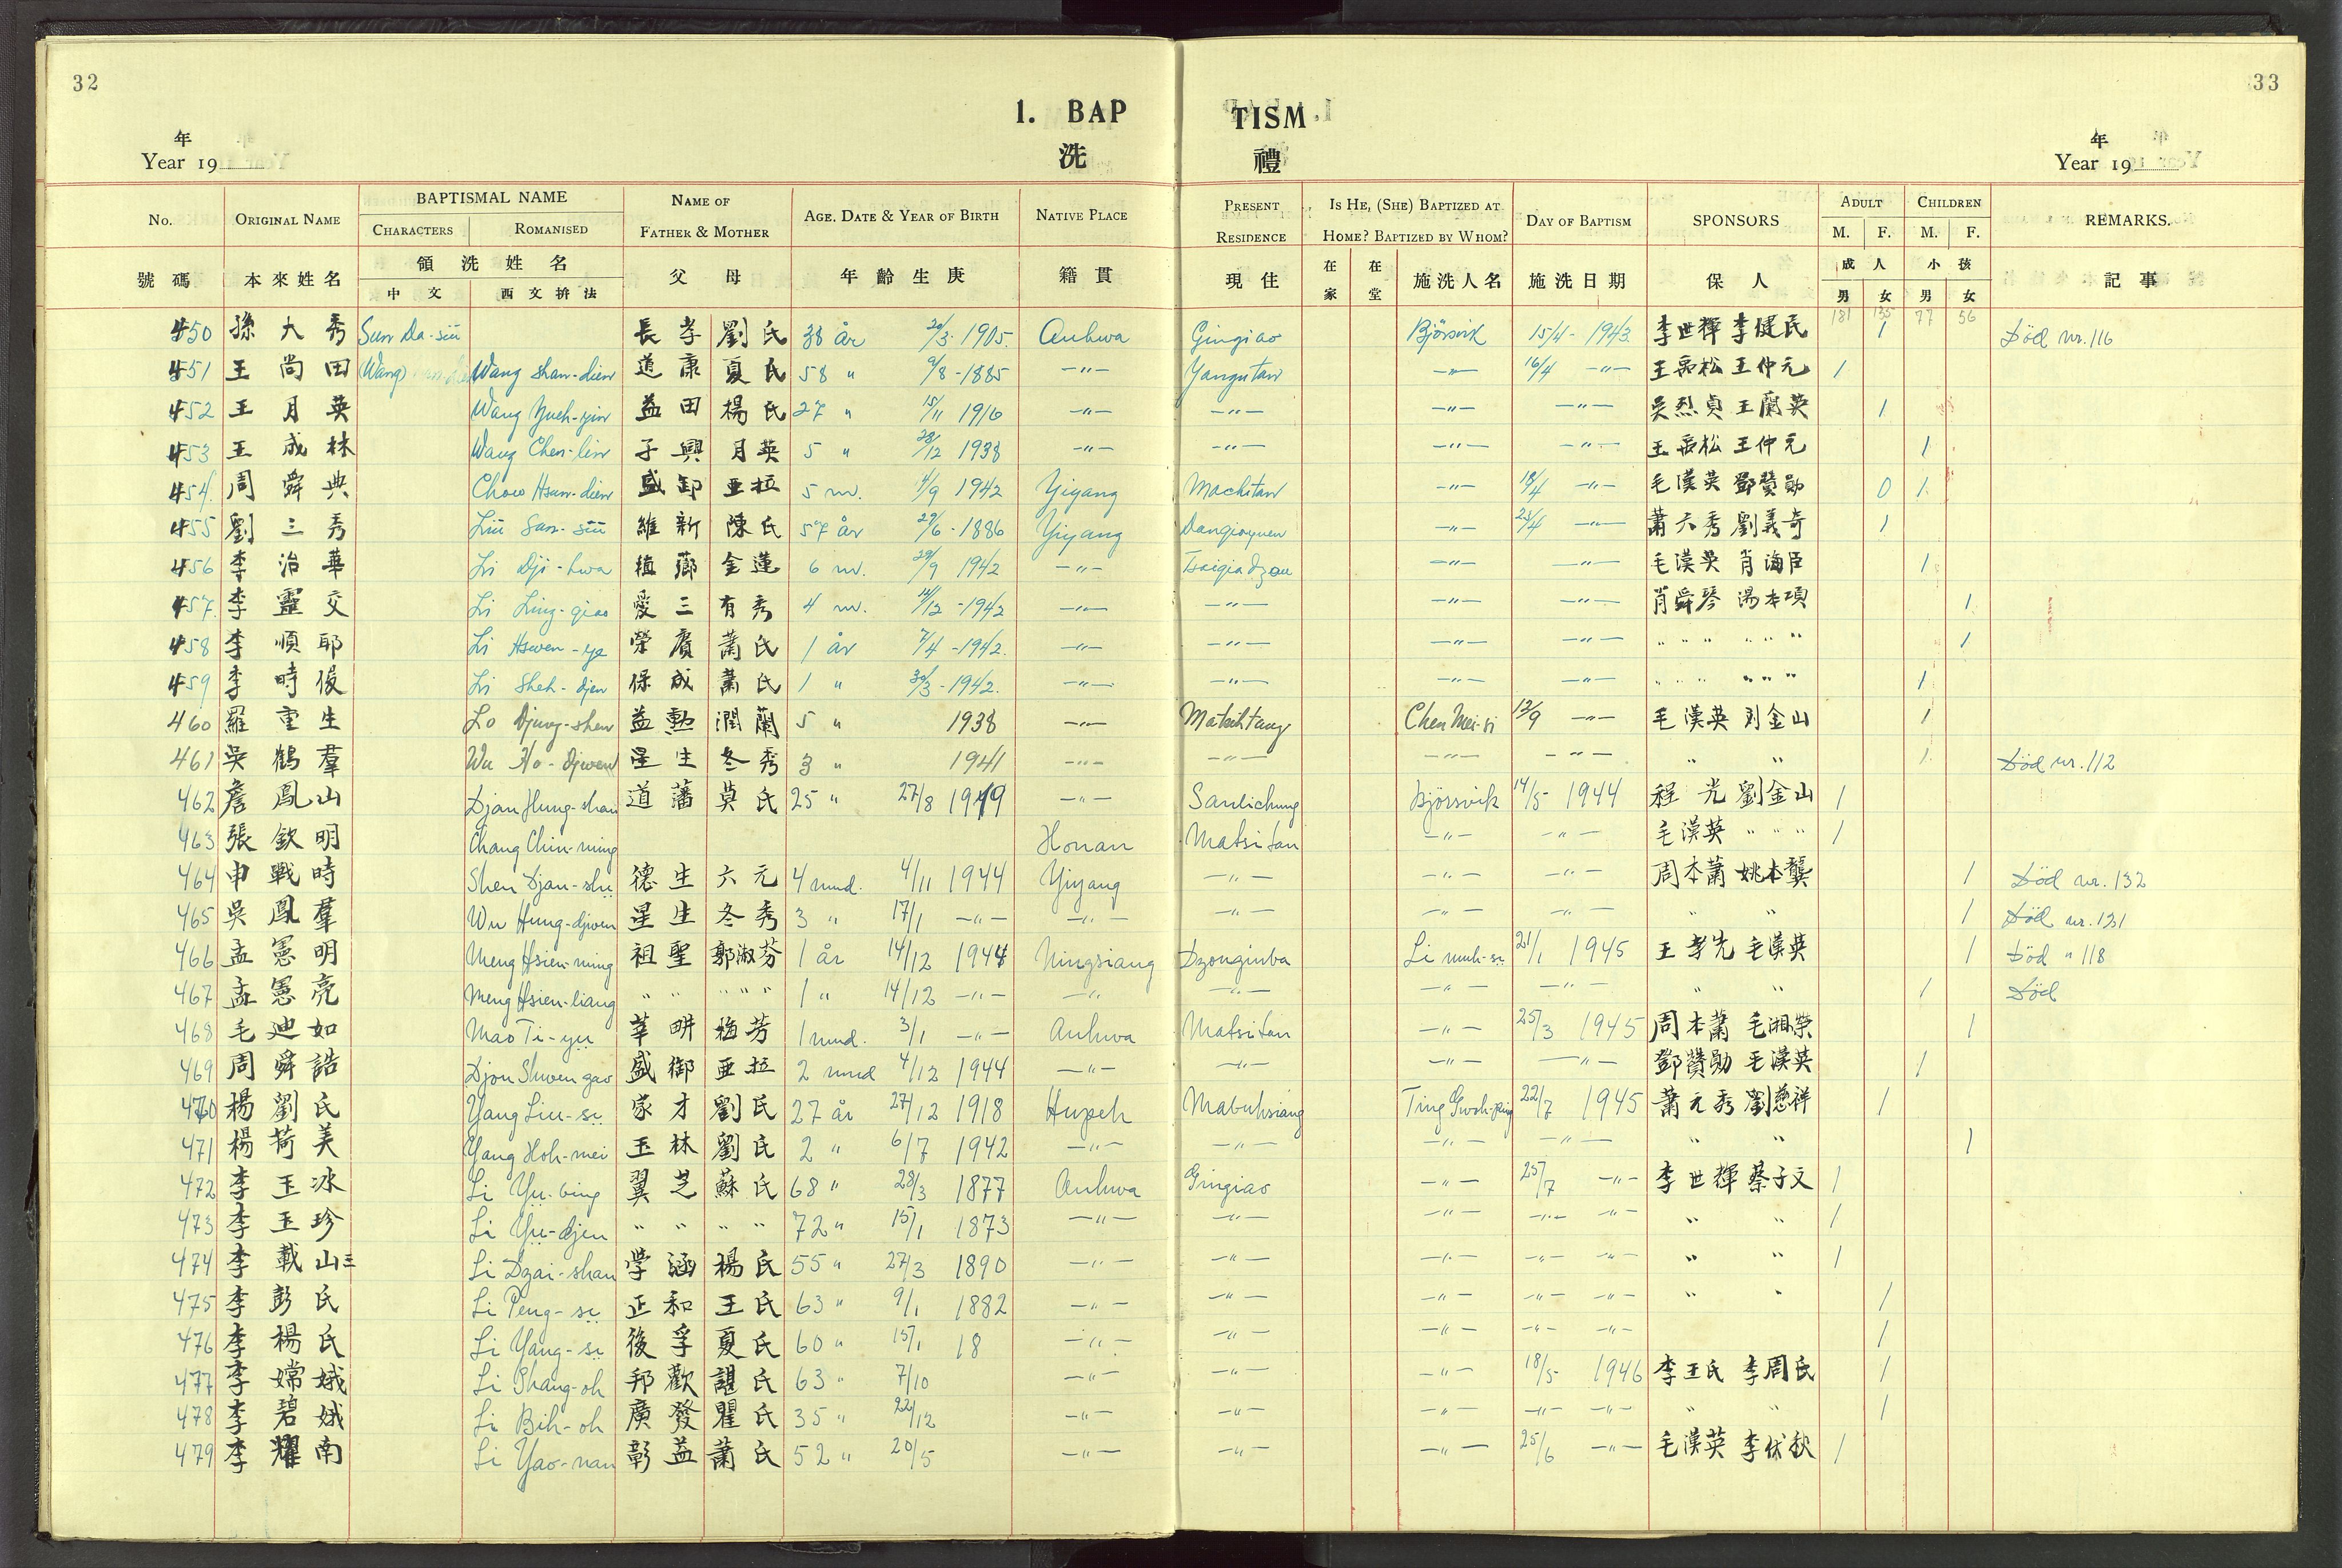 32
33
1. BAP TISM
洗 禮
年
Year 19
年
Year 19
No. ORIGINAL NAME BAPTISMAL NAME NAME OF FATHER & MOTHER AGE. DATE & YEAR OF BIRTH NATIVE PLACE PRESENT RESIDENCE IS HE, (SHE) BAPTIZED AT HOME? BAPTIZED BY WHOM? DAY OF BAPTISM SPONSORS ADULT CHILDREN REMARKS.
CHARACTERS ROMANISED M. F. M. F.
號碼 本來姓名 領洗姓名 父母 年齡生庚 籍貫 現住 在家 在堂 施洗人名 施洗日期 保人 成人 小孩 記事
中文 西文拚法 男 女 男 女
181 135 77 56
450 孫大秀 Sun Da-siü 長孝 劉氏 38 år 20/3-1905. Anhwa Gingiao Björsvik 15/4-1943. 李世輝 李健民 1 Död nr. 116
451 王尚田 (Wang) Wang Shan-dien 道康 夏氏 58 " 9/8-1885 -"- Yangutan -"- 16/4 -"- 王禹松 王仲元 1
452 王月英 Wang Yueh-yin 益田 楊氏 27 " 15/11 1916 -"- -"- -"- -"- 吳烈貞 王蘭英 1
453 王成林 Wang Chen-lin 子興 月英 5 " 28/12 1938 -"- -"- -"- -"- 王禹松 王仲元 1
454 周舜典 Chow Hsun-dien 盛卸 亜拉 5 m. 4/9 1942 Yiyang Machitan -"- 18/4 -"- 毛漢英 鄧贊勛 0 1
455 劉三秀 Liü San-siü 維新 陳氏 57 år 29/6-1886 Yiyang Danqioyuen -"- 23/4 -"- 蕭六秀 劉義奇 1
456 李治華 Li Dji-hwa 植薌 金蓮 6 m. 29/9 1942 -"- Tsaigiadzou -"- -"- 毛漢英 肖海臣 1
457 李靈交 Li Ling-giao 愛三 有秀 4 m. 14/12-1942 -"- -"- -"- -"- 肖舜琴 湯本項 1
458 李順耶 Li Hswen-ye 榮賡 蕭氏 1 år 7/4-1942. -"- -"- -"- -"- " " " " " " 1
459 李時俊 Li Sheh-djen 保成 蕭氏 1 " 30/3-1942. -"- -"- -"- -"- " " " " " " 1
460 羅重生 Lo Djung-shen 益勲 潤蘭 5 " 1938 -"- Matsihtang Chen Mei-si 12/9 -"- 毛漢英 刘金山 1
461 吳鶴羣 Wu Ho-djwen 星生 冬秀 3 " 1941 -"- -"- -"- -"- " " 1 Död nr. 112
462 詹鳳山 Djan Hung-shan 道藩 莫氏 25 " 27/8 1919 -"- Sanlichung Björsvik 14/5 1944 程光 劉金山 1
463 張欽明 Chang Chin-ming Honan Matsitan -"- -"- 毛漢英 " " " 1
464 申戰時 Shen Djan-shï 德生 六元 4 mnd. 4/11 1944 Yiyang -"- -"- -"- 周本蕭 姚本龔 1 Död nr. 132
465 吳鳳羣 Wu Hung-djwen 星生 冬秀 3 " 17/1 -"- -"- -"- -"- -"- " " 1 Död nr. 131
466 孟憲明 Meng Hsien-ming 祖聖 郭淑芬 1 år 14/12 1944 Ningsiang Dzonginba Li muh-sï 21/1 1945 王孝先 毛漢英 1 Död " 118
467 孟憲亮 Meng Hsien-liang " " " " " 1 " 14/12 -"- -"- -"- -"- -"- " " 1 Död
468 毛迪如 Mao Ti-yu 莘畊 梅芳 1 mnd. 3/1 -"- Anhwa Matsitan -"- 25/3 1945 周本蕭 毛湘榮 1
469 周舜誥 Djou Shwen gao 盛御 亜拉 2 mnd 4/12 1944 -"- -"- -"- -"- 鄧贊勛 毛漢英 1
470 楊劉氏 Yang Liu-sï 家才 劉氏 27 år 27/12 1918 Hupeh Mabuhsiang Ting Gwoh-ping 22/7 1945 蕭元秀 劉慈祥 1
471 楊荷美 Yang Hoh-mei 玉林 劉氏 2 " 6/7 1942 -"- -"- -"- -"- " " 1
472 李玉冰 Li Yu-bing 翼芝 蘇氏 68 " 28/3 1877 Anhwa Gingiao -"- 25/7 -"- 李世輝 蔡子文 1
473 李玉珍 Li Yu-djen " " " " 72 " 15/1 1873 -"- -"- -"- -"- -"- " " 1
474 李載山三 Li Dzai-shan 学涵 楊氏 55 " 27/3 1890 -"- -"- -"- -"- -"- " " 1
475 李彭氏 Li Peng-sï 正和 王氏 63 " 9/1 1882 -"- -"- -"- -"- -"- " " 1
476 李楊氏 Li Yang-sï 後孚 夏氏 60 " 15/1 18 -"- -"- -"- -"- -"- 1
477 李嫦娥 Li Shang-oh 邦歡 諶氏 63 " 7/10 -"- -"- -"- 18/5 1946 李王氏 李周氏 1
478 李碧娥 Li Bih-oh 廣發 瞿氏 35 " 22/12 -"- -"- -"- -"- -"- " " 1
479 李耀南 Li Yao-nan 彰益 蕭氏 52 " 20/5 -"- -"- -"- 25/6 -"- 毛漢英 李伏秋 1